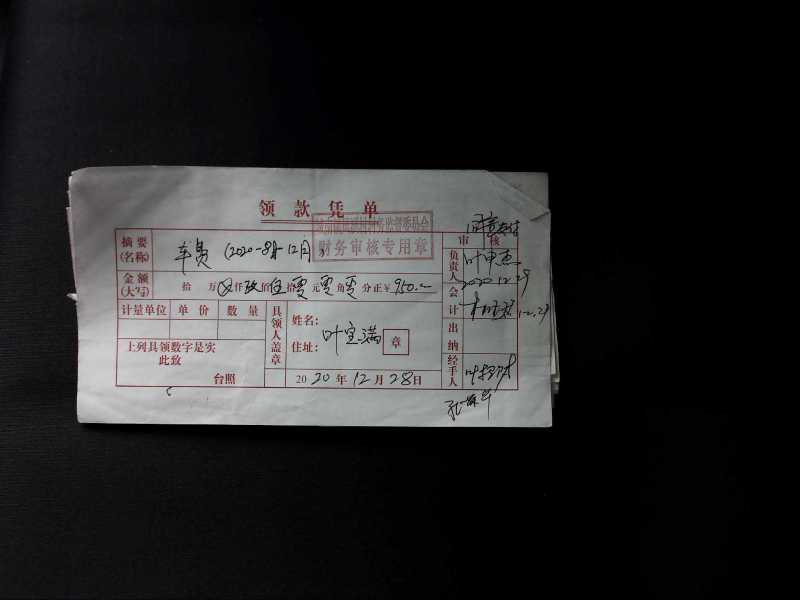 领款凭单
财务审核专用章
同意支付
审核
摘要(名称) 车费 (2020-8月-12月)
负责人 叶中杰 2020.12.29
金额(大写) 拾万⊗仟玖佰伍拾零元零角零分正¥950.-
会计 12.29
计量单位 单价 数量
具领人盖章 姓名: 住址: 叶宝满 章
出纳
上列具领数字是实
此致
台照
2020年12月28日
经手人